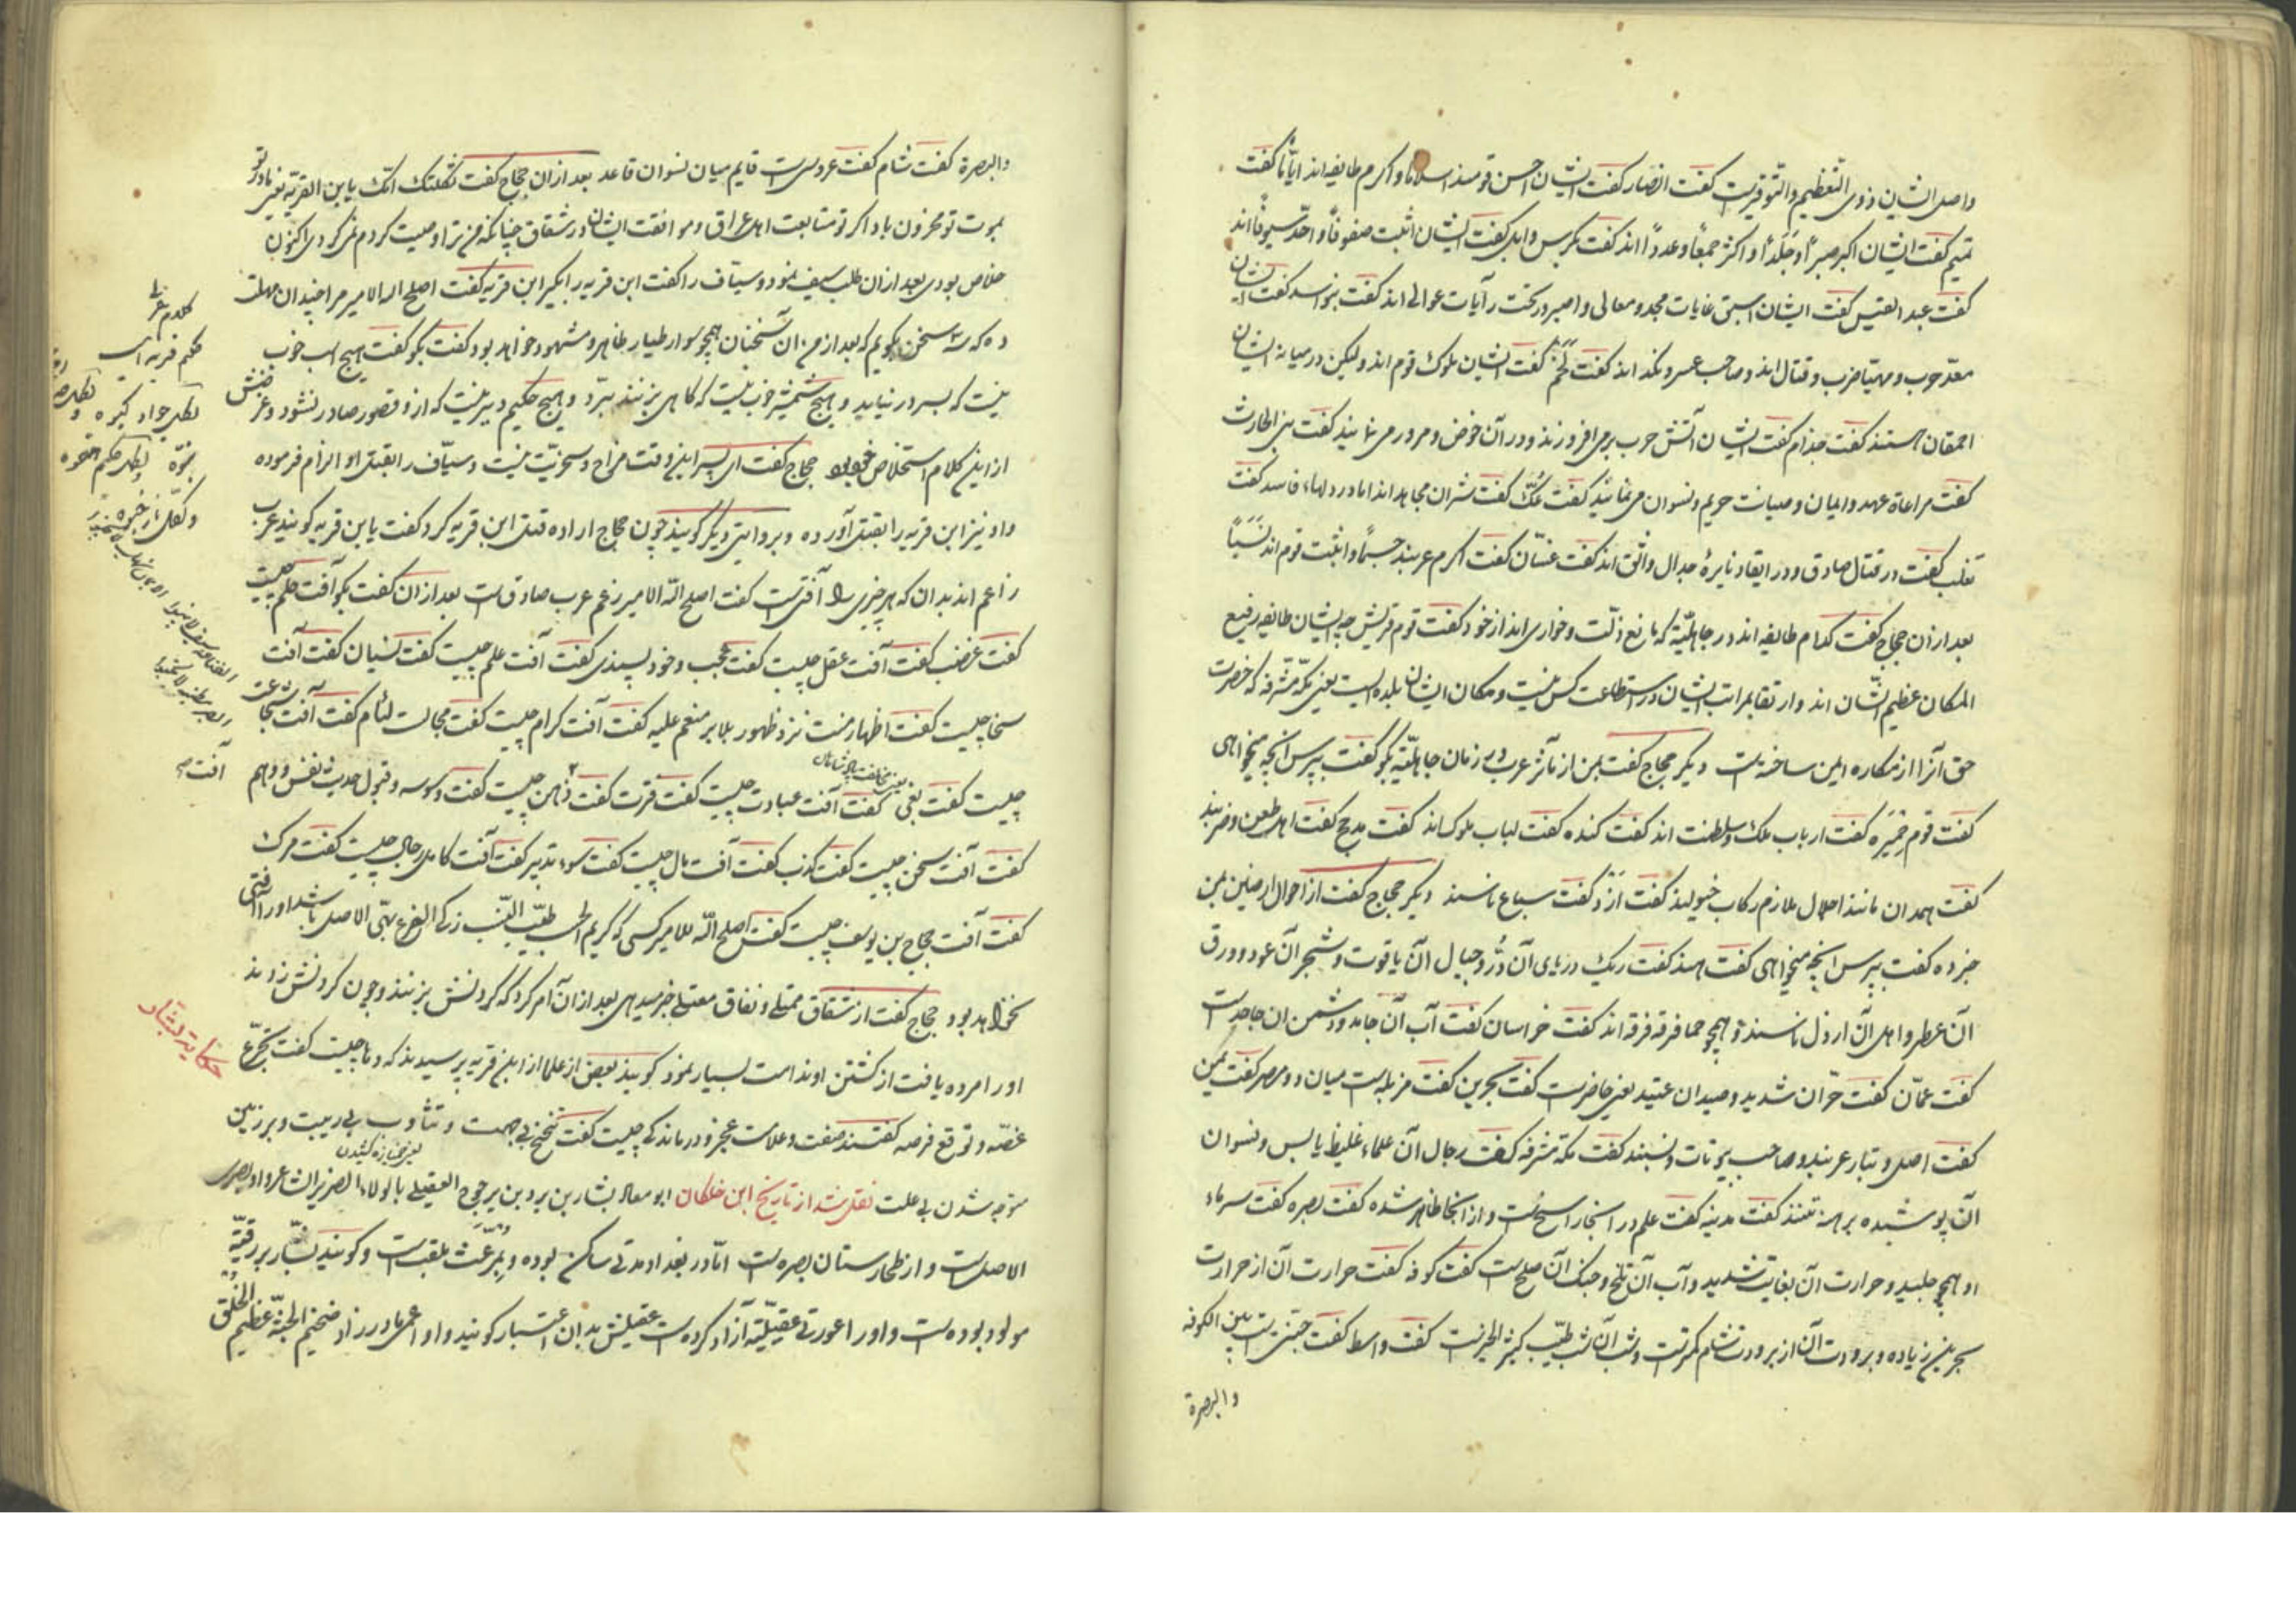 واصل ایشان ذوی التعظیم والتوقیرست کفت انصار کفت ایشان احسن قومند اسلاما واکرم طایفه اند ایاما کفت
تمیم کفت ایشان اکبر صبرا وجلدا واکثر جمعا وعددا اند کفت بکر بن وایل کفت ایشان اثبت صفوفا واحد سیوفا اند
کفت عبد القیس کفت ایشان اسبق غایات مجد ومعالی در تحت رآیات عوالی اند کفت بنو اسد کفت ایشان
معد حرب ومهیا ضرب وقتال اند وصاحب عسر ونکد اند کفت لخم کفت ایشان ملوک قوم اند ولیکن در میانه ایشان
احمقان هستند کفت جذام کفت ایشان آتش حرب برمی افروزند ودر آن خوض ومرور می نمایند کفت بنی الحارث
کفت مراعاة عهد وایمان وصیانت حریم ونسوان می نمایند کفت عک کفت شران مجاهد اند اما در دلهاء فاسد کفت
تغلب کفت در قتال صادق ودر ایقاد نایرهٔ جدال واثق اند کفت غسان کفت اکرم عربند حسبا واثبت قوم اند نسبا
بعد ازان حجاج کفت کدام طایفه اند در جاهلیة که مانع ذلت وخواری اند از خود کفت قوم قریش چه ایشان طایفه رفیع
المکان عظیم الشان اند وارتقا بمراتب ایشان در استطاعت کس نیست ومکان ایشان بلده ایست یعنی مکه مشرفه که حضرت
حق آنرا از مکاره ایمن ساخته است دیکر حجاج کفت بمن از مآثر عرب در زمان جاهلیة بکو کفت بپرس آنچه میخواهی
کفت قوم حمیره کفت ارباب ملک وسلطنت اند کفت کنده کفت لباب ملوک اند کفت مذحج کفت اهل طعن وضربند
کفت همدان مانند احلال ملازم رکاب خیولند کفت ازد کفت سباع ناسند دیکر حجاج کفت از احوال ارضین بمن
خبر ده کفت بپرس آنچه میخواهی کفت هند کفت ریک دریای آن در وجبال آن یاقوت وشجر آن عود وورق
آن عطر واهل آن ارذل ناسند وهمچو حما فرقه فرقه اند کفت خراسان کفت آب آن جامد ودشمن آن جاحد است
کفت عمان کفت حر آن شدید وصید آن عتید یعنی حاضرست کفت بحرین کفت مزبله است میان دو مصر کفت یمن
کفت اصل وتبار عربند وصاحب بیوتات ونسبند کفت مکه مشرفه کفت رجال آن علماء غلیظ یابس ونسوان
آن پوشیده برهنه تنند کفت مدینه کفت علم در آنجا راسخ است واز آنجا ظاهر شده کفت بصره کفت سرماء
او همچو جلید وحرارت آن بغایت شدید وآب آن تلخ وجنک آن صلح است کفت کوفه کفت حرارت آن از حرارت
بحرین زیاده وبرودت آن از برودت شام کمترست وشب آن شب طیب کثیر الخیرست کفت واسط کفت جنتی است بین الکوفة
والبصرة
والبصرة کفت شام کفت عروس است قایم میان نسوان قاعد بعد ازان حجاج کفت ثکلتک امک یا بن القریة یعنی مادر تو
بموت تو محزون باد اکر تو متابعت اهل عراق وموافقت ایشان در شقاق چنانکه من ترا وصیت کردم نمی کردی اکنون
خلاص بودی بعد ازان طلب سیف نمود وسیاف را کفت ابن قریه را بکیر ابن قریه کفت اصلح الله الامیر مرا چندان مهلت
ده که سه سخن بکویم که بعد از من آن سخنان همچو سوار طیار ظاهر ومشهود خواهد بود کفت بکو کفت هیچ اسب خوب
نیست که بسر در نیاید وهیچ شمشیر خوب نیست که کاهی بزنند نبرد وهیچ حکیم دبیر نیست که ازو قصور صادر نشود وغرضش
از این کلام استخلاص خود بود حجاج کفت ای پسر این وقت مزاح وسخریت نیست وسیاف را بقتل او الزام فرموده
واو نیز ابن قریه را بقتل آورده وبروایتی دیکر کویند چون حجاج اراده قتل ابن قریه کرد کفت یا بن قریه کویند عرب
زاعم اند بدان که هر چیزی را آفتی است کفت اصلح الله الامیر زعم عرب صادق است بعد ازان کفت بکو آفت حلم چیست
کفت غضب کفت آفت عقل چیست کفت عجب وخود پسندی کفت آفت علم چیست کفت نسیان کفت آفت
سخا چیست کفت اظهار منت نزد ظهور بلا بر منعم علیه کفت آفت کرام چیست کفت مجالست لئام کفت آفت شجاعت
چیست کفت بغی کفت آفت عبادت چیست کفت فترت کفت آفت ذهن چیست کفت وسوسه وقبول حدیث نفس ووهم
کفت آفت سخن چیست کفت کذب کفت آفت مال چیست کفت سوء تدبیر کفت آفت کامل رجال چیست کفت مرک
کفت آفت حجاج بن یوسف چیست کفت اصلح الله الامیر کسی که کریم الحسب طیب النسب زکی الفرع بهی الاصل باشد اورا آفتی
نخواهد بود حجاج کفت از شقاق ممتلی ونفاق معتلی خبر میدهی بعد ازان امر کرد که کردنش بزنند وچون کردنش زدند
اورا مرده یافت از کشتن او ندامت بسیار نمود کویند بعضی از علما از ابن قریه پرسیدند که دها چیست کفت تجرع
غصه وتوقع فرصه کفتند صفت وعلامت عجز ودرماندکی چیست کفت تنحنح بی جهت وتثاوب بی ریبت وبر زمین
یعنی خمیازه کشیدن
متوجه شدن بی علت نقل شد از تاریخ ابن خلکان ابو معاذ بشار بن برد بن یرجوخ العقیلی بالولاء الضریر الشاعر واو بصری
الاصل است واز طخارستان بصره است اما در بغداد مدتی ساکن بوده وبمرعث ملقب است وکویند بشار بر رقیه
مولود بوده است واورا عورتی عقیلیه آزاد کرده است عقیلیش بدان اعتبار کویند واو اعمی مادرزاد ضخیم الجثه عظیم الخلق
حکایة بشار